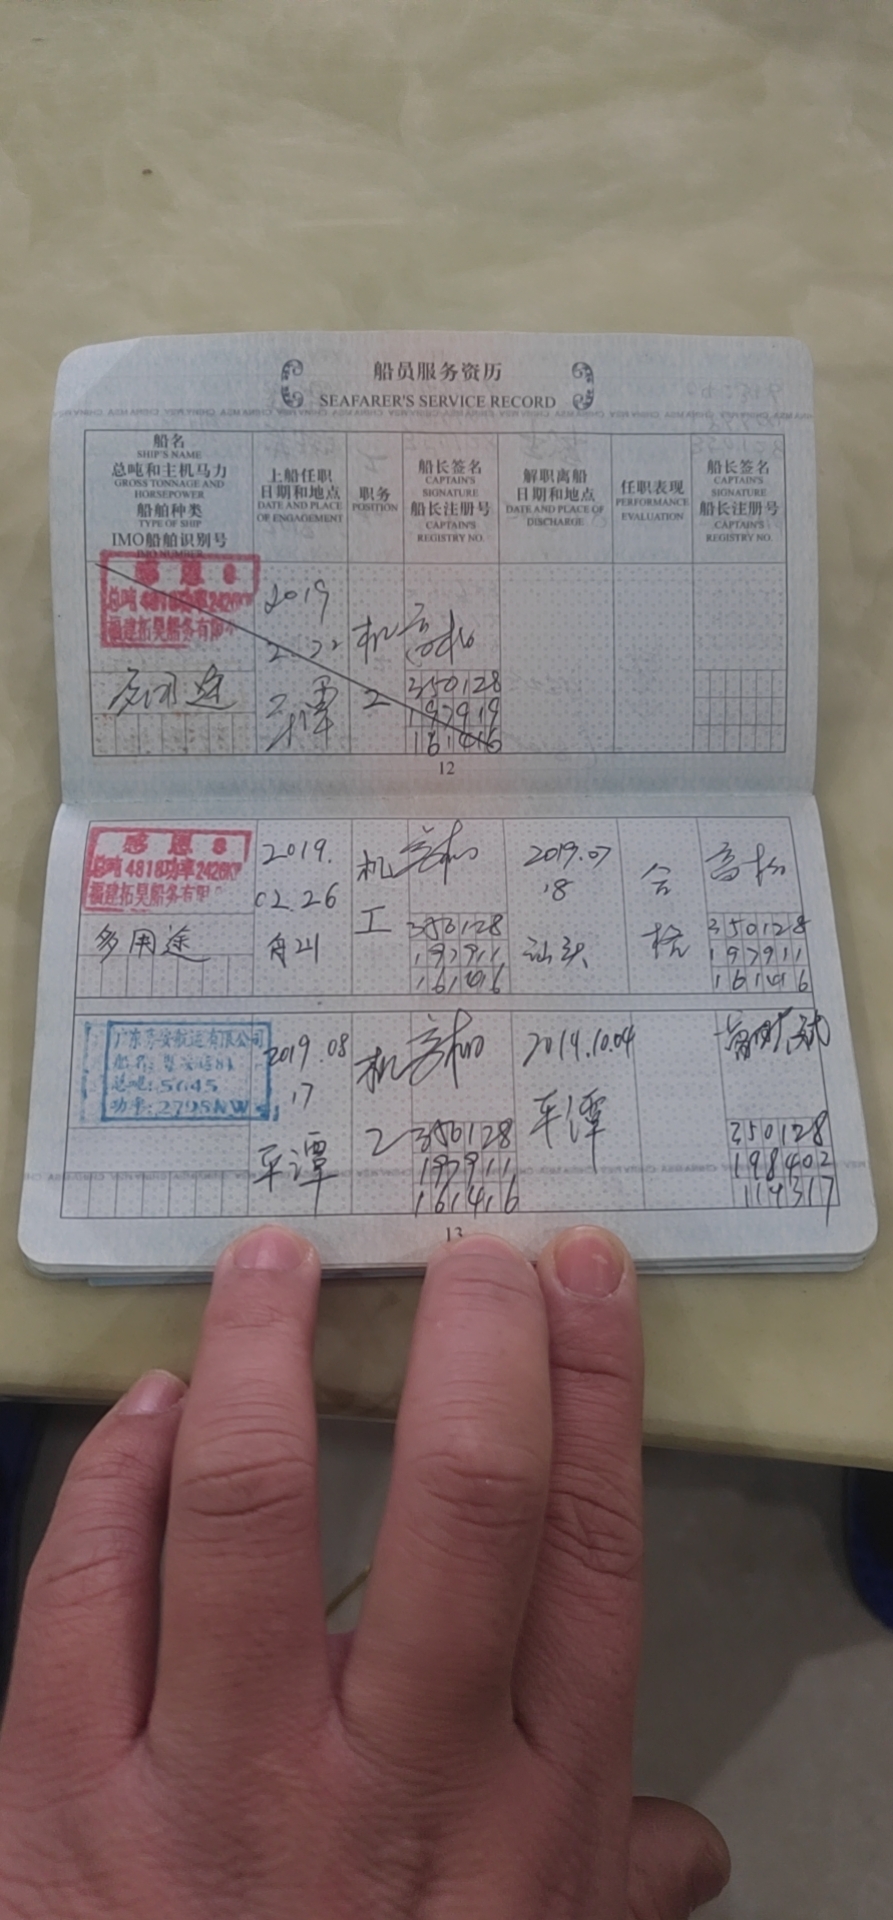 船员服务资历
SEAFARER'S SERVICE RECORD
船名
SHIP'S NAME
总吨和主机马力
GROSS TONNAGE AND
HORSEPOWER
船舶种类
TYPE OF SHIP
IMO船舶识别号
IMO NUMBER
上船任职
日期和地点
DATE AND PLACE
OF ENGAGEMENT
职务
POSITION
船长签名
CAPTAIN'S
SIGNATURE
船长注册号
CAPTAIN'S
REGISTRY NO.
解职离船
日期和地点
DATE AND PLACE OF
DISCHARGE
任职表现
PERFORMANCE
EVALUATION
船长签名
CAPTAIN'S
SIGNATURE
船长注册号
CAPTAIN'S
REGISTRY NO.
感恩8
总吨4818功率2426KW
福建拓昊船务有限
多用途
2019
平潭
机
350128
161416
12
感恩8
总吨4818功率2426KW
福建拓昊船务有限
多用途
2019.
02.26
舟山
机
工
350128
197911
161416
2019.07
18
汕头
合
格
350128
197911
161416
航运有限公司
船名:
总吨:5645
功率:2795KW
2019.08
17
平潭
机
350128
197911
161416
2019.10.04
平潭
350128
198402
114317
13